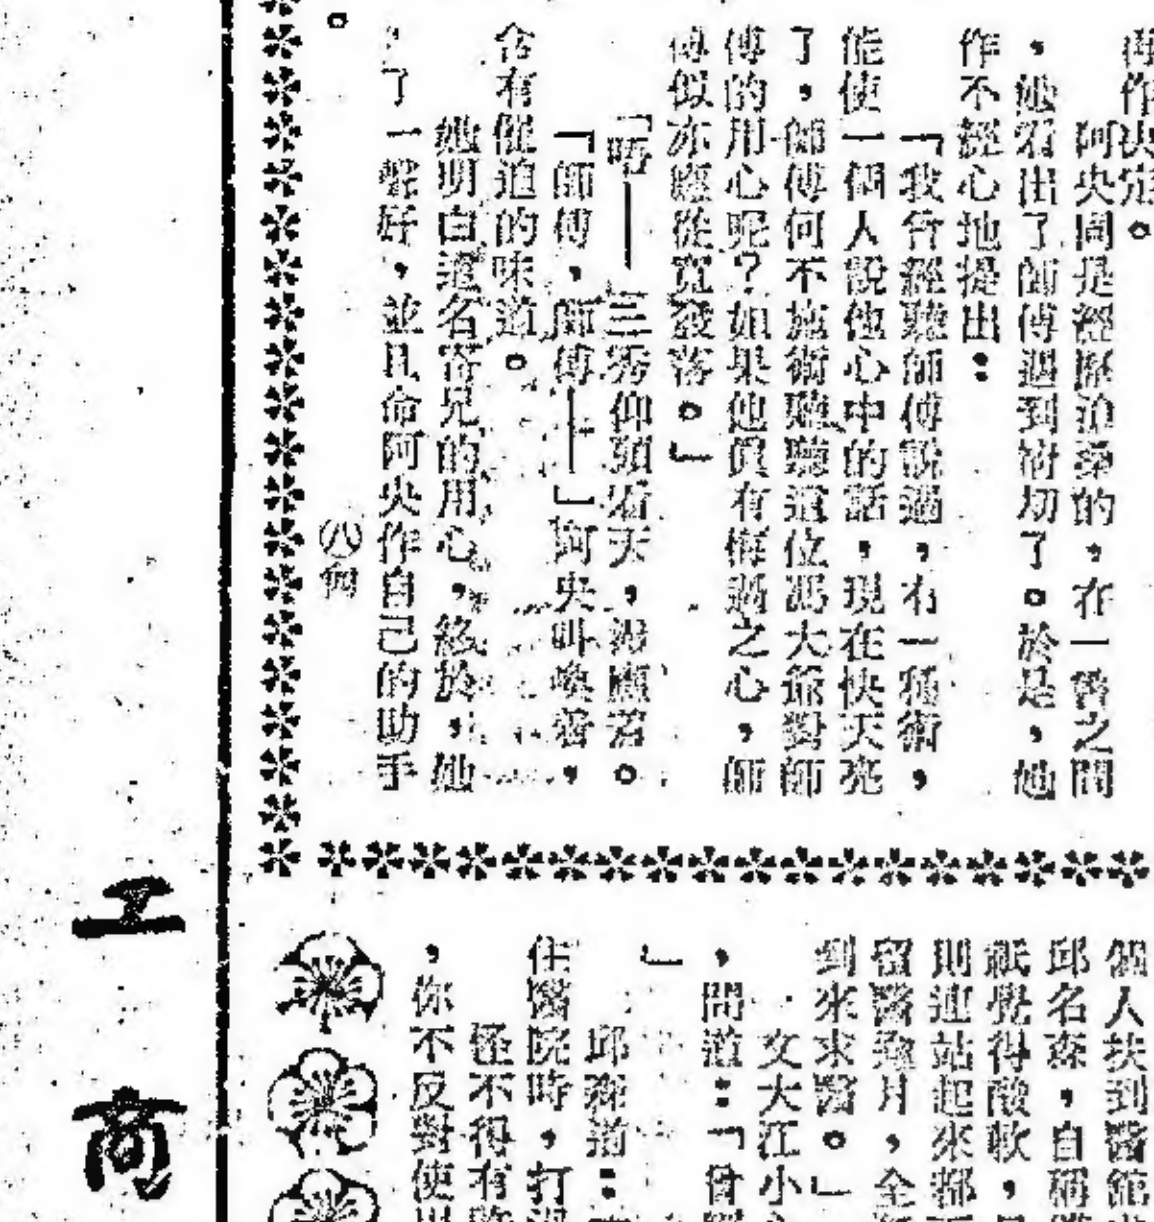 再作决定。
阿央周是經歷滄桑的,在一瞥之間
,她看出了師傅遇到窘切了。於是,她
作不經心地提出:
「我曾經聽師傅說過,有一種術,
能使一個人說他心中的話,現在快天亮
了,師傅何不施術聽聽這位馮大爺對師
傅的用心呢?如果他眞有悔過之心,師
傅似亦應從寬發落。」
「唔——三秀仰頭看天,漫應着。
「師傅,師傅——」阿央叫喚着,
含有催迫的味道。
她明白這名寄兄的用心,終於,她
了一聲好,並且命阿央作自己的助手
。
㈧
個人扶到醫舘
邱名森,自稱
祇覺得酸軟,
則連站起來都
留醫逾月,全
到來求醫。」
文大江小
,問道:「曾
」
邱森道:
住醫院時,打
怪不得有
,你不反對使用
工商